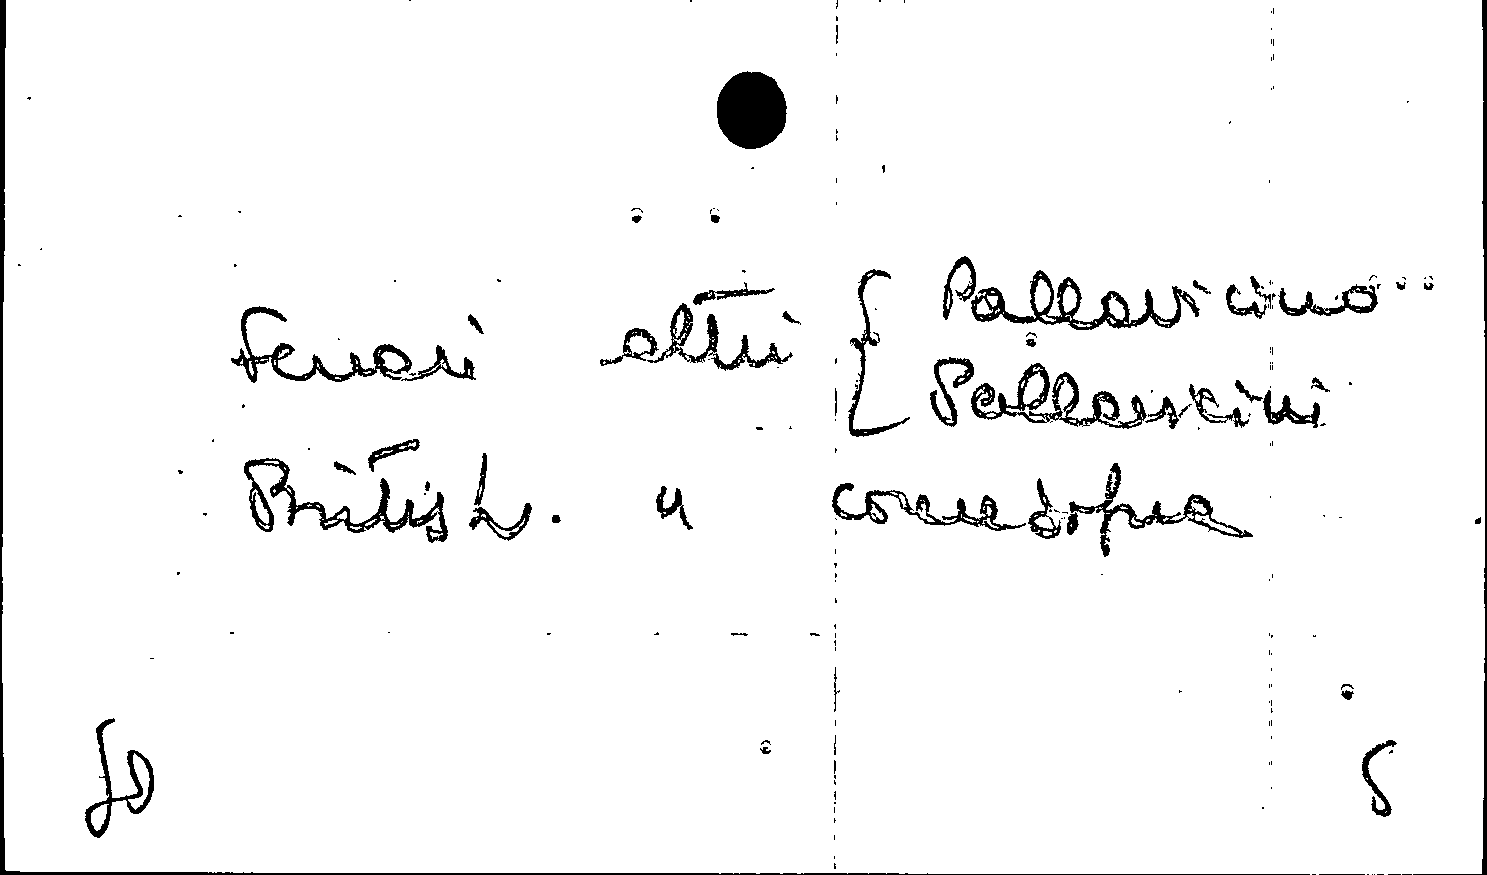 Ferrari altri { Pallavicino
Pallavicini
British. "
SD S